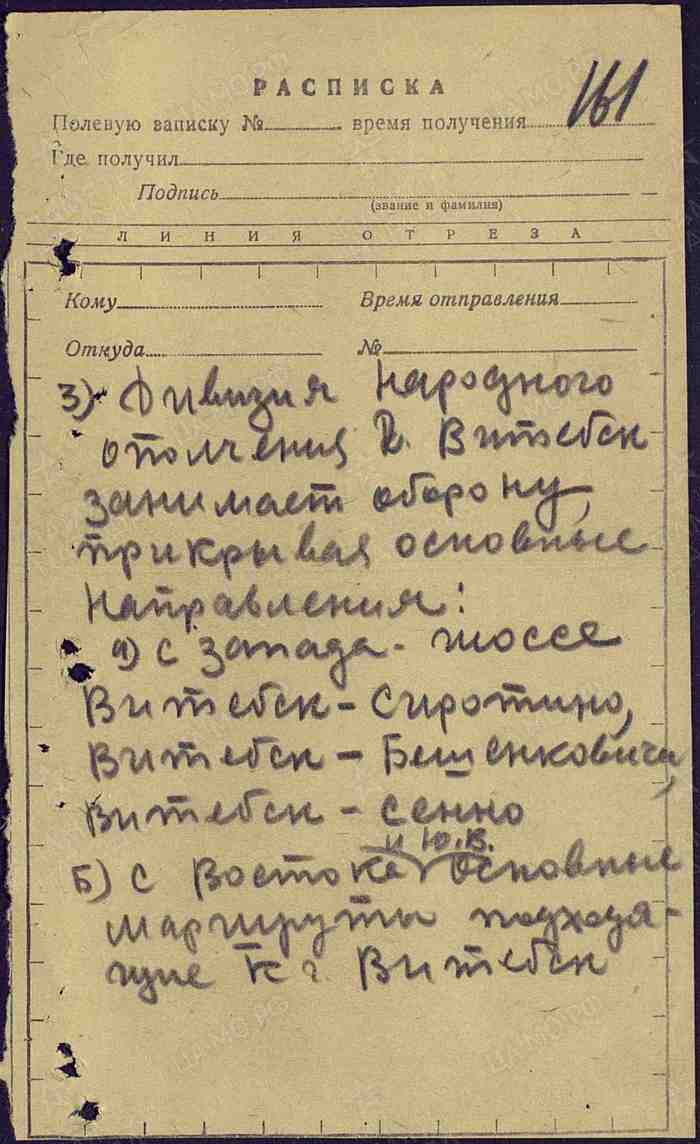 161
РАСПИСКА
Полевую записку № время получения
Где получил
Подпись
(звание и фамилия)
ЛИНИЯ ОТРЕЗА
Кому Время отправления
Откуда №
3) Дивизия Народного
ополчения г. Витебск
занимает оборону,
прикрывая основные
направления:
а) с запада - шоссе
Витебск - Сиротино,
Витебск - Бешенковичи,
Витебск - Сенно
и Ю.В.
Б) с Востока основные
маршруты подходя-
щие к г. Витебск